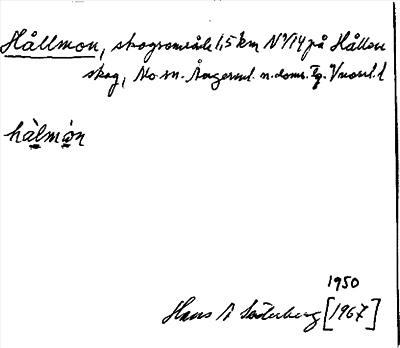 Hållmon, skogsområde 1,5 km N på Hållen
skog, No sn. Ångerml. n. doms. Tg.
hàlmòn
1950
Hans A Söderberg [1967]